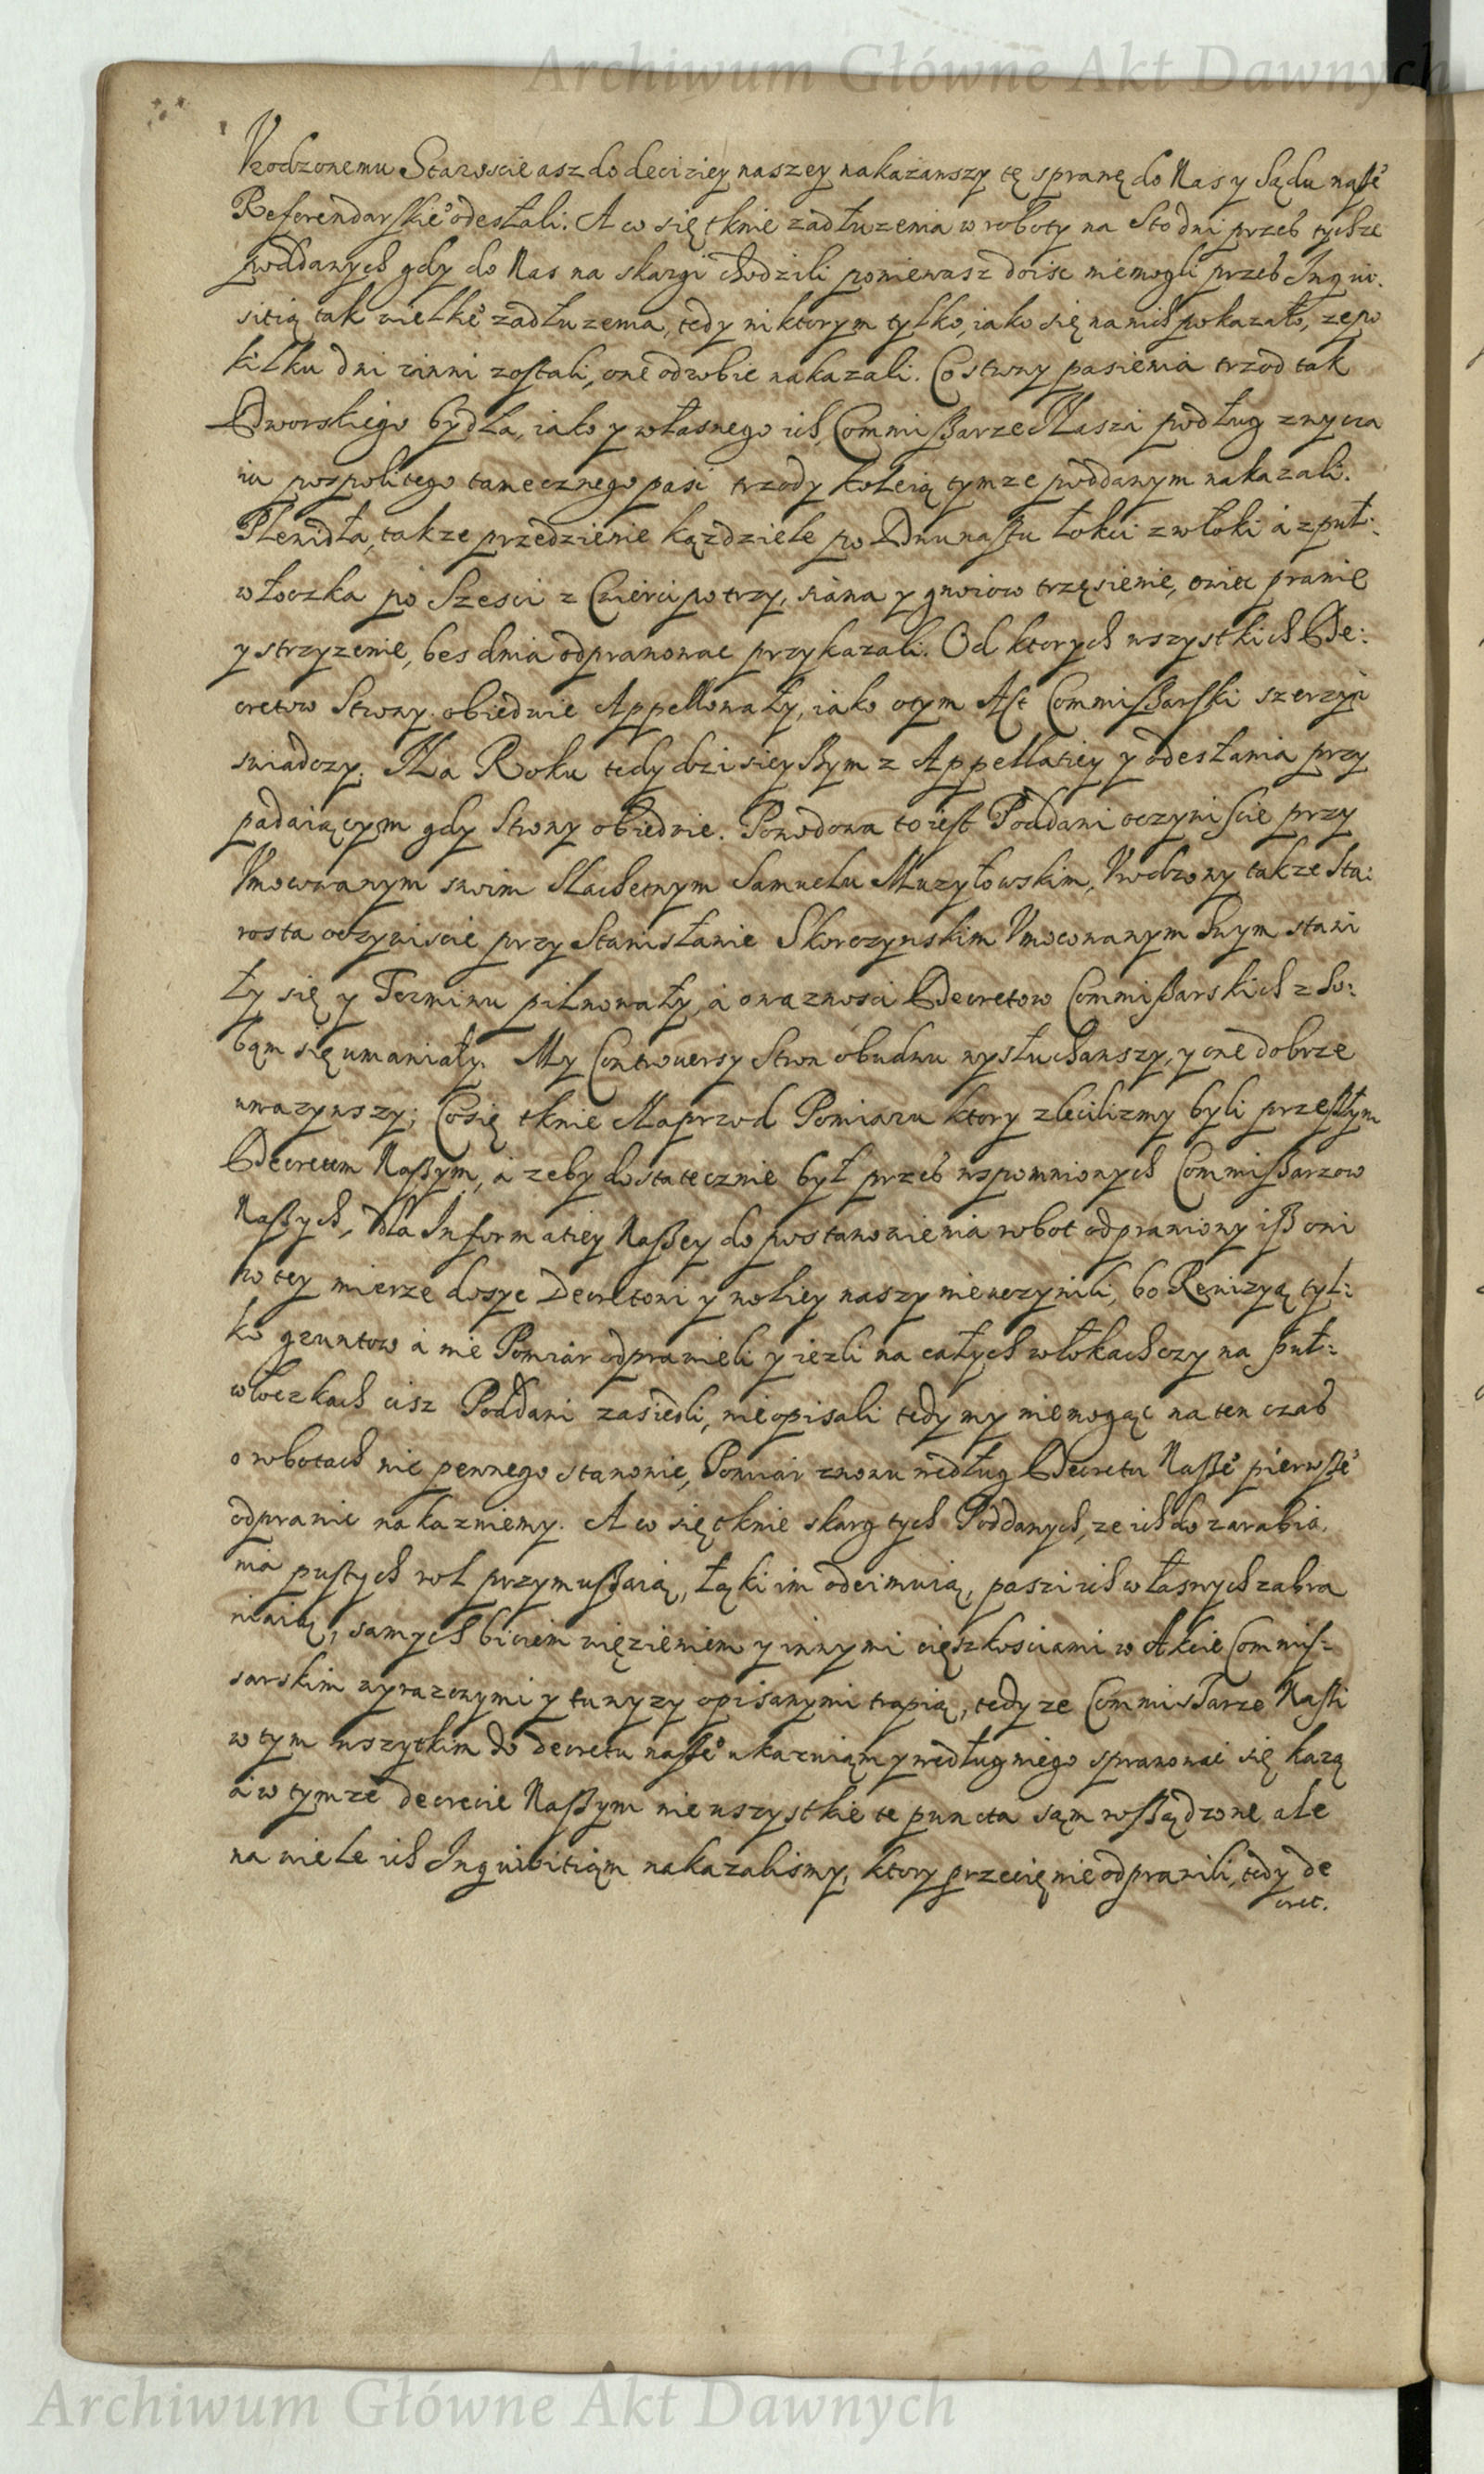 Archiwum Główne Akt Dawnych
Vrodzonemu Staroscie asz do deciziey naszey nakazawszy tę sprawę do Nas y Sądu naszeº
Referendarskieº odesłali. A co się tknie zadłuzenia w roboty na Sto dni przes tychze
poddanych gdy do Nas na skargi chodzili poniewasz doisc niemogli przes Inqui-
sitią tak wielkieº zadłuzenia, tedy niktorym tylko, iako się na nich pokazało, ze po
kilku dni winni zostali, one odrobic nakazali. Co strony pasienia trzod tak
Dworskiego bydła, iako y własnego ich, Commissarze Naszi podług zwycza
iu pospolitego tamecznego pasc trzody koleią tymze poddanym nakazali.
Plewidła, takze przedzienie kązdziele po Dwunastu łokci z włoki á z puł-
włoczka po Szesci z Cwierci po trzy, siana y gnoiow trzęsienie, owiec pranie
y strzyzenie, bes dnia odprawowac przykazali. Od ktorych wszystkich De:
cretow Strony obiedwie Appellowały, iako o tym Act Commissarski szerzyi
swiadczy. Na Roku tedy dzisieyszym z Appellatiey y odesłania przy
padaiącym gdy Strony obiedwie. Powodowa to iest Poddani oczywiscie przy
Vmocowanym swoim Slachetnym Samuelu Muzyłowskim, Vrodzony takze Sta:
rosta oczywiscie przy Stanisławie Skorczynskim Vmocowanym Swym stawi
ły się y Terminu pilnowały, á o waznosci Decretow Commissarskich z So:
bąm się umawiały. My Controuersy Stron obudwu wysłuchawszy, y one dobrze
uwazywszy; Co się tknie Naprzod Pomiaru ktory zlecilizmy byli przeszłym
Decretem Naszym, á zeby dostatecznie był przes wspomnionych Commissarzow
Naszych, dla Informatiey Naszey do postanowienia robot odprawiony isz oni
w tey mierze dosyc Decretowi y woliey naszy nieuczynili, bo Rewizyą tyl:
ko gruntow á nie Pomiar odprawieli y iezli na całych włokach czy na puł:
włoczkach cisz Poddani zasiedli, nieopisali tedy my niemogąc na ten czas
o robotach nic pewnego stanowic, Pomiar znowu według Decretu Naszeº pierwszeº
odprawic nakazuiemy. A co się tknie skarg tych Poddanych, ze ich do zarabia-
nia pustych rol przymuszaią, łąki im odeimuią, paszi ich własnych zabra
niaią, samych biciem więzieniem y innymi cięszkosciami w Akcie Commis:
sarskim wyrazonymi y tu wyzy opisanymi trapią, tedy ze Commissarze Naszi
w tym wszytkim do decretu naszeº ukazuiąm y według niego sprawowac się kazą
á w tymze decrecie Naszym nie wszystkie te puncta sąm rossądzone ale
na wiele ich Inquisitiąm nakazalismy, ktory przecię nie odprawili, tedy de
cret.
Archiwum Główne Akt Dawnych